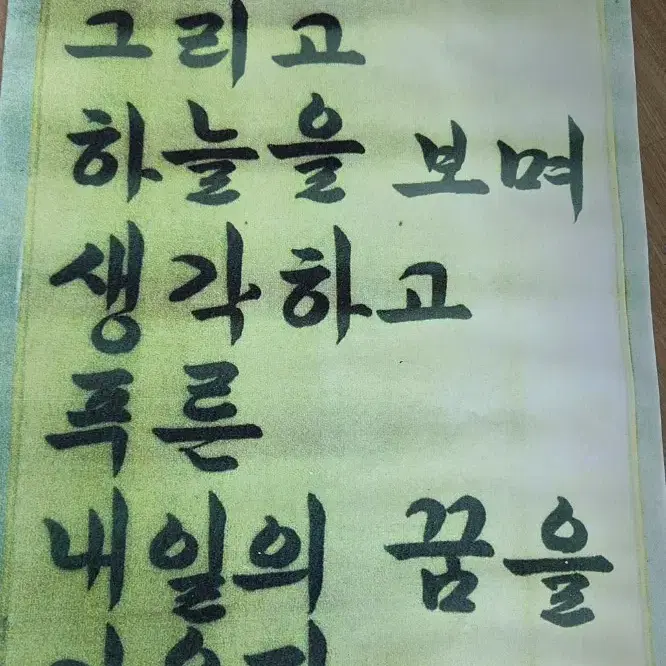 그리고
하늘을 보며
생각하고
푸른
내일의 꿈을